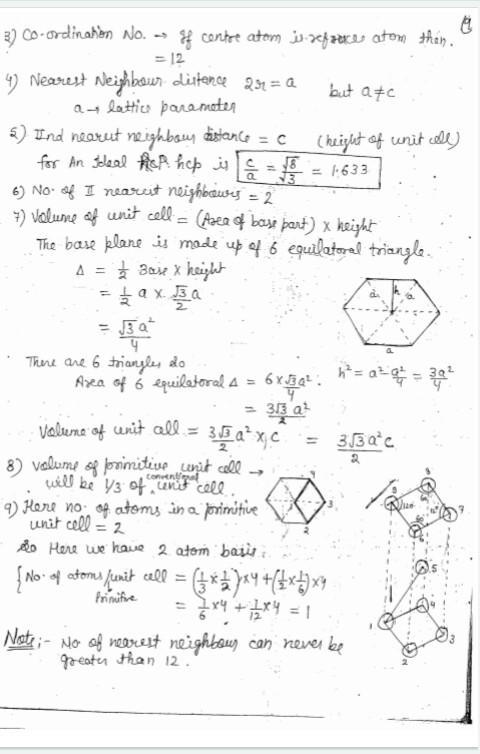 3) Co-ordination No. → If centre atom is refrence atom then.
= 12
4) Nearest Neighbour distance 2r = a but a ≠ c
a → lattice parameter
5) IInd nearest neighbour distance = c (height of unit cell)
for An Ideal hcp is c/a = √8/√3 = 1.633
6) No. of II nearest neighbours = 2
7) Volume of unit cell = (Area of base part) × height
The base plane is made up of 6 equilatoral triangle.
Δ = 1/2 Base × height
= 1/2 a × √3/2 a
= √3 a²/4
h
a a
a
There are 6 triangles so
Area of 6 equilatoral Δ = 6 × √3 a²/4 . h² = a² - a²/4 = 3a²/4
= 3√3 a²/2
Volume of unit cell = 3√3/2 a² × c = 3√3 a² c/2
8) Volume of primitive unit cell →
will be 1/3 of conventional unit cell
9) Here no. of atoms in a primitive
unit cell = 2
so Here we have 2 atom basis.
{ No. of atoms/unit cell = (1/3 × 1/2) × 4 + (1/2 × 1/6) × 4
Primitive
= 1/6 × 4 + 1/12 × 4 = 1
4
3
2
8
9
7
120
6
5
4
1
3
2
Note:- No of nearest neighbour can never be
greater than 12.